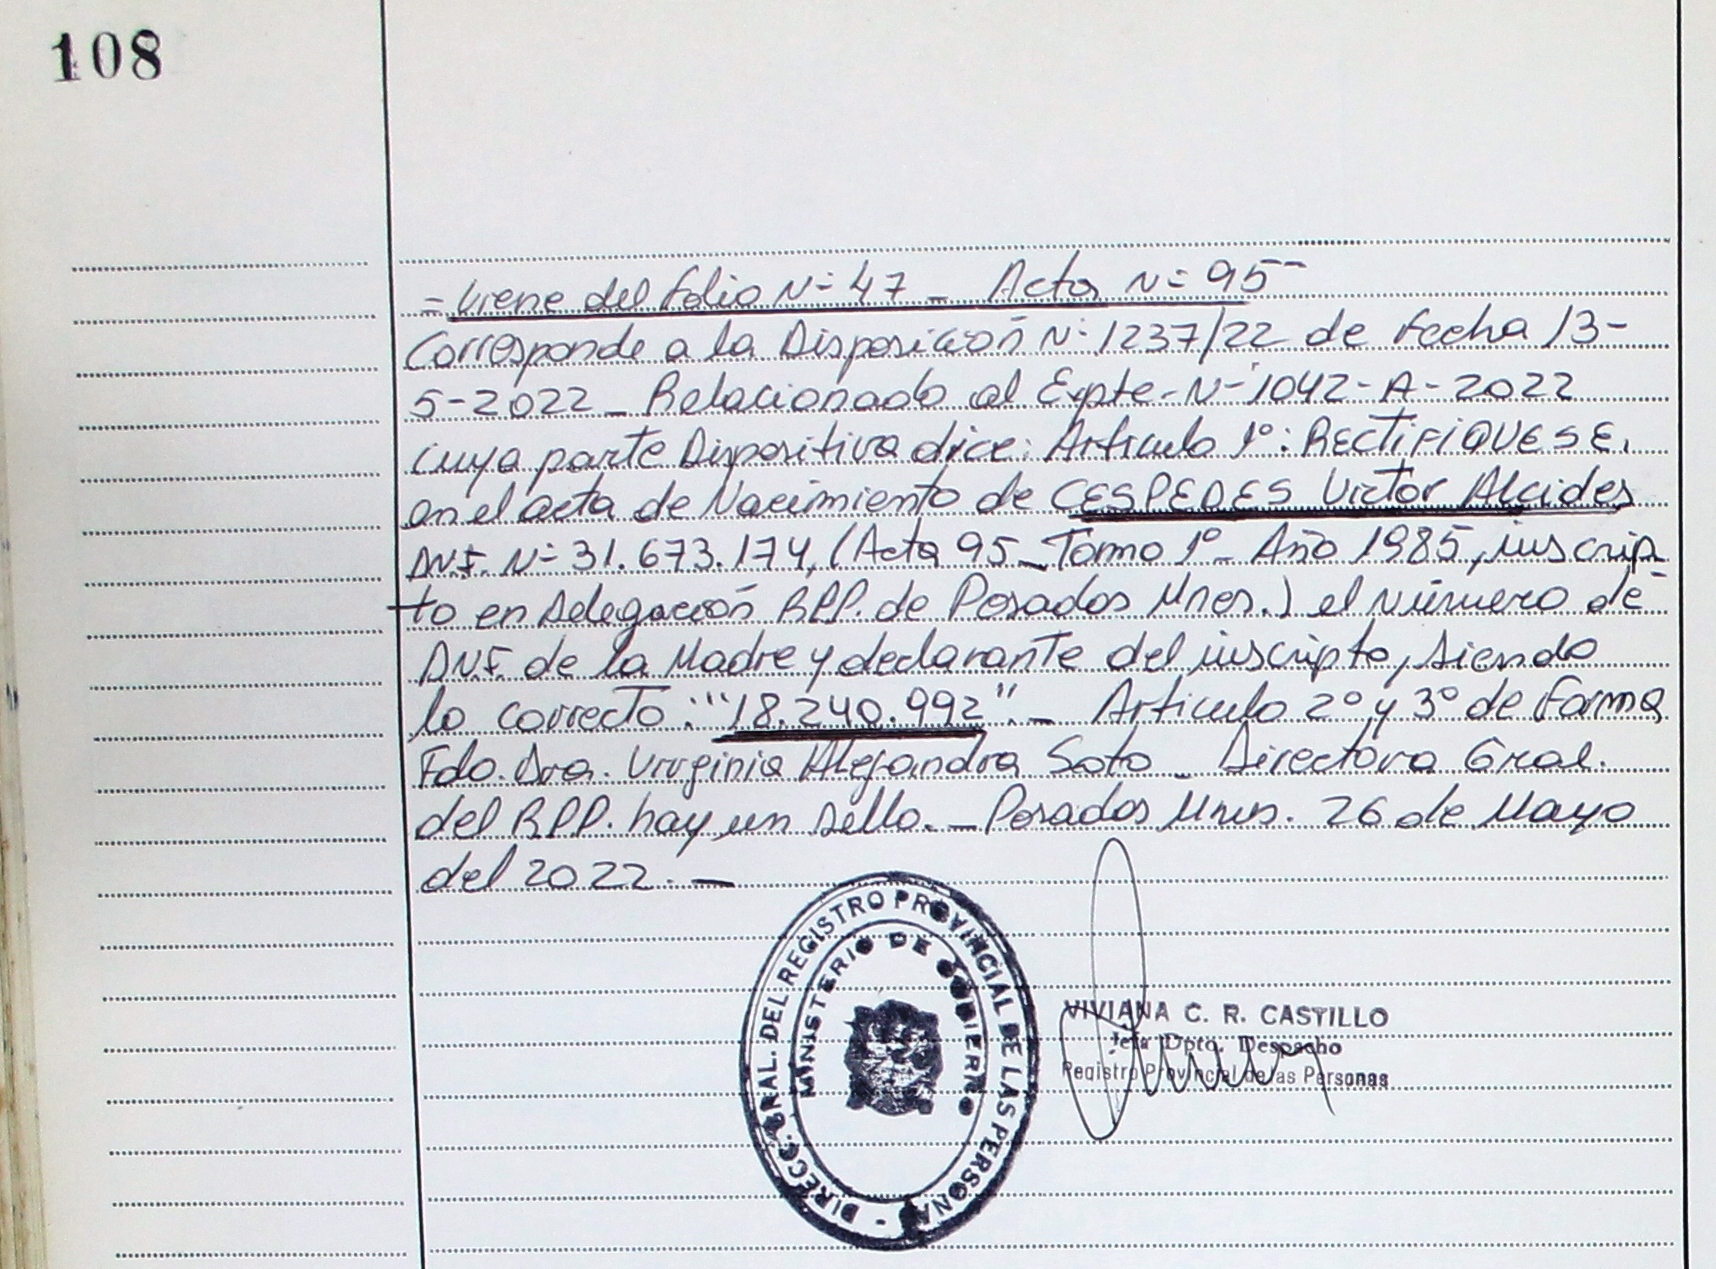 108
= Viene del folio Nº 47 _ Acta Nº 95 -
Corresponde a la Disposición Nº 1237/22 de fecha 13-
5-2022 _ Relacionado al Expte-Nº 1042-A-2022
cuya parte Dispositiva dice: Artículo 1º: RECTIFIQUESE.
en el acta de Nacimiento de CESPEDES Victor Alcides
D.N.I. Nº 31.673.174, (Acta 95 _ Tomo 1º _ Año 1985, inscrip
to en Delegación RPP. de Posadas Mnes.) el número de
D.N.I. de la Madre y declarante del inscripto, siendo
lo correcto: "18.240.992". _ Artículo 2º y 3º de forma
Fdo. Dra. Virginia Alejandra Soto _ Directora Gral.
del RPP. hay un sello. _ Posadas Mnes. 26 de Mayo
del 2022. _
DIRECC. GRAL. DEL REGISTRO PROVINCIAL DE LAS PERSONAS -
MINISTERIO DE GOBIERNO
VIVIANA C. R. CASTILLO
Jefa Dpto. Despacho
Registro Provincial de las Personas